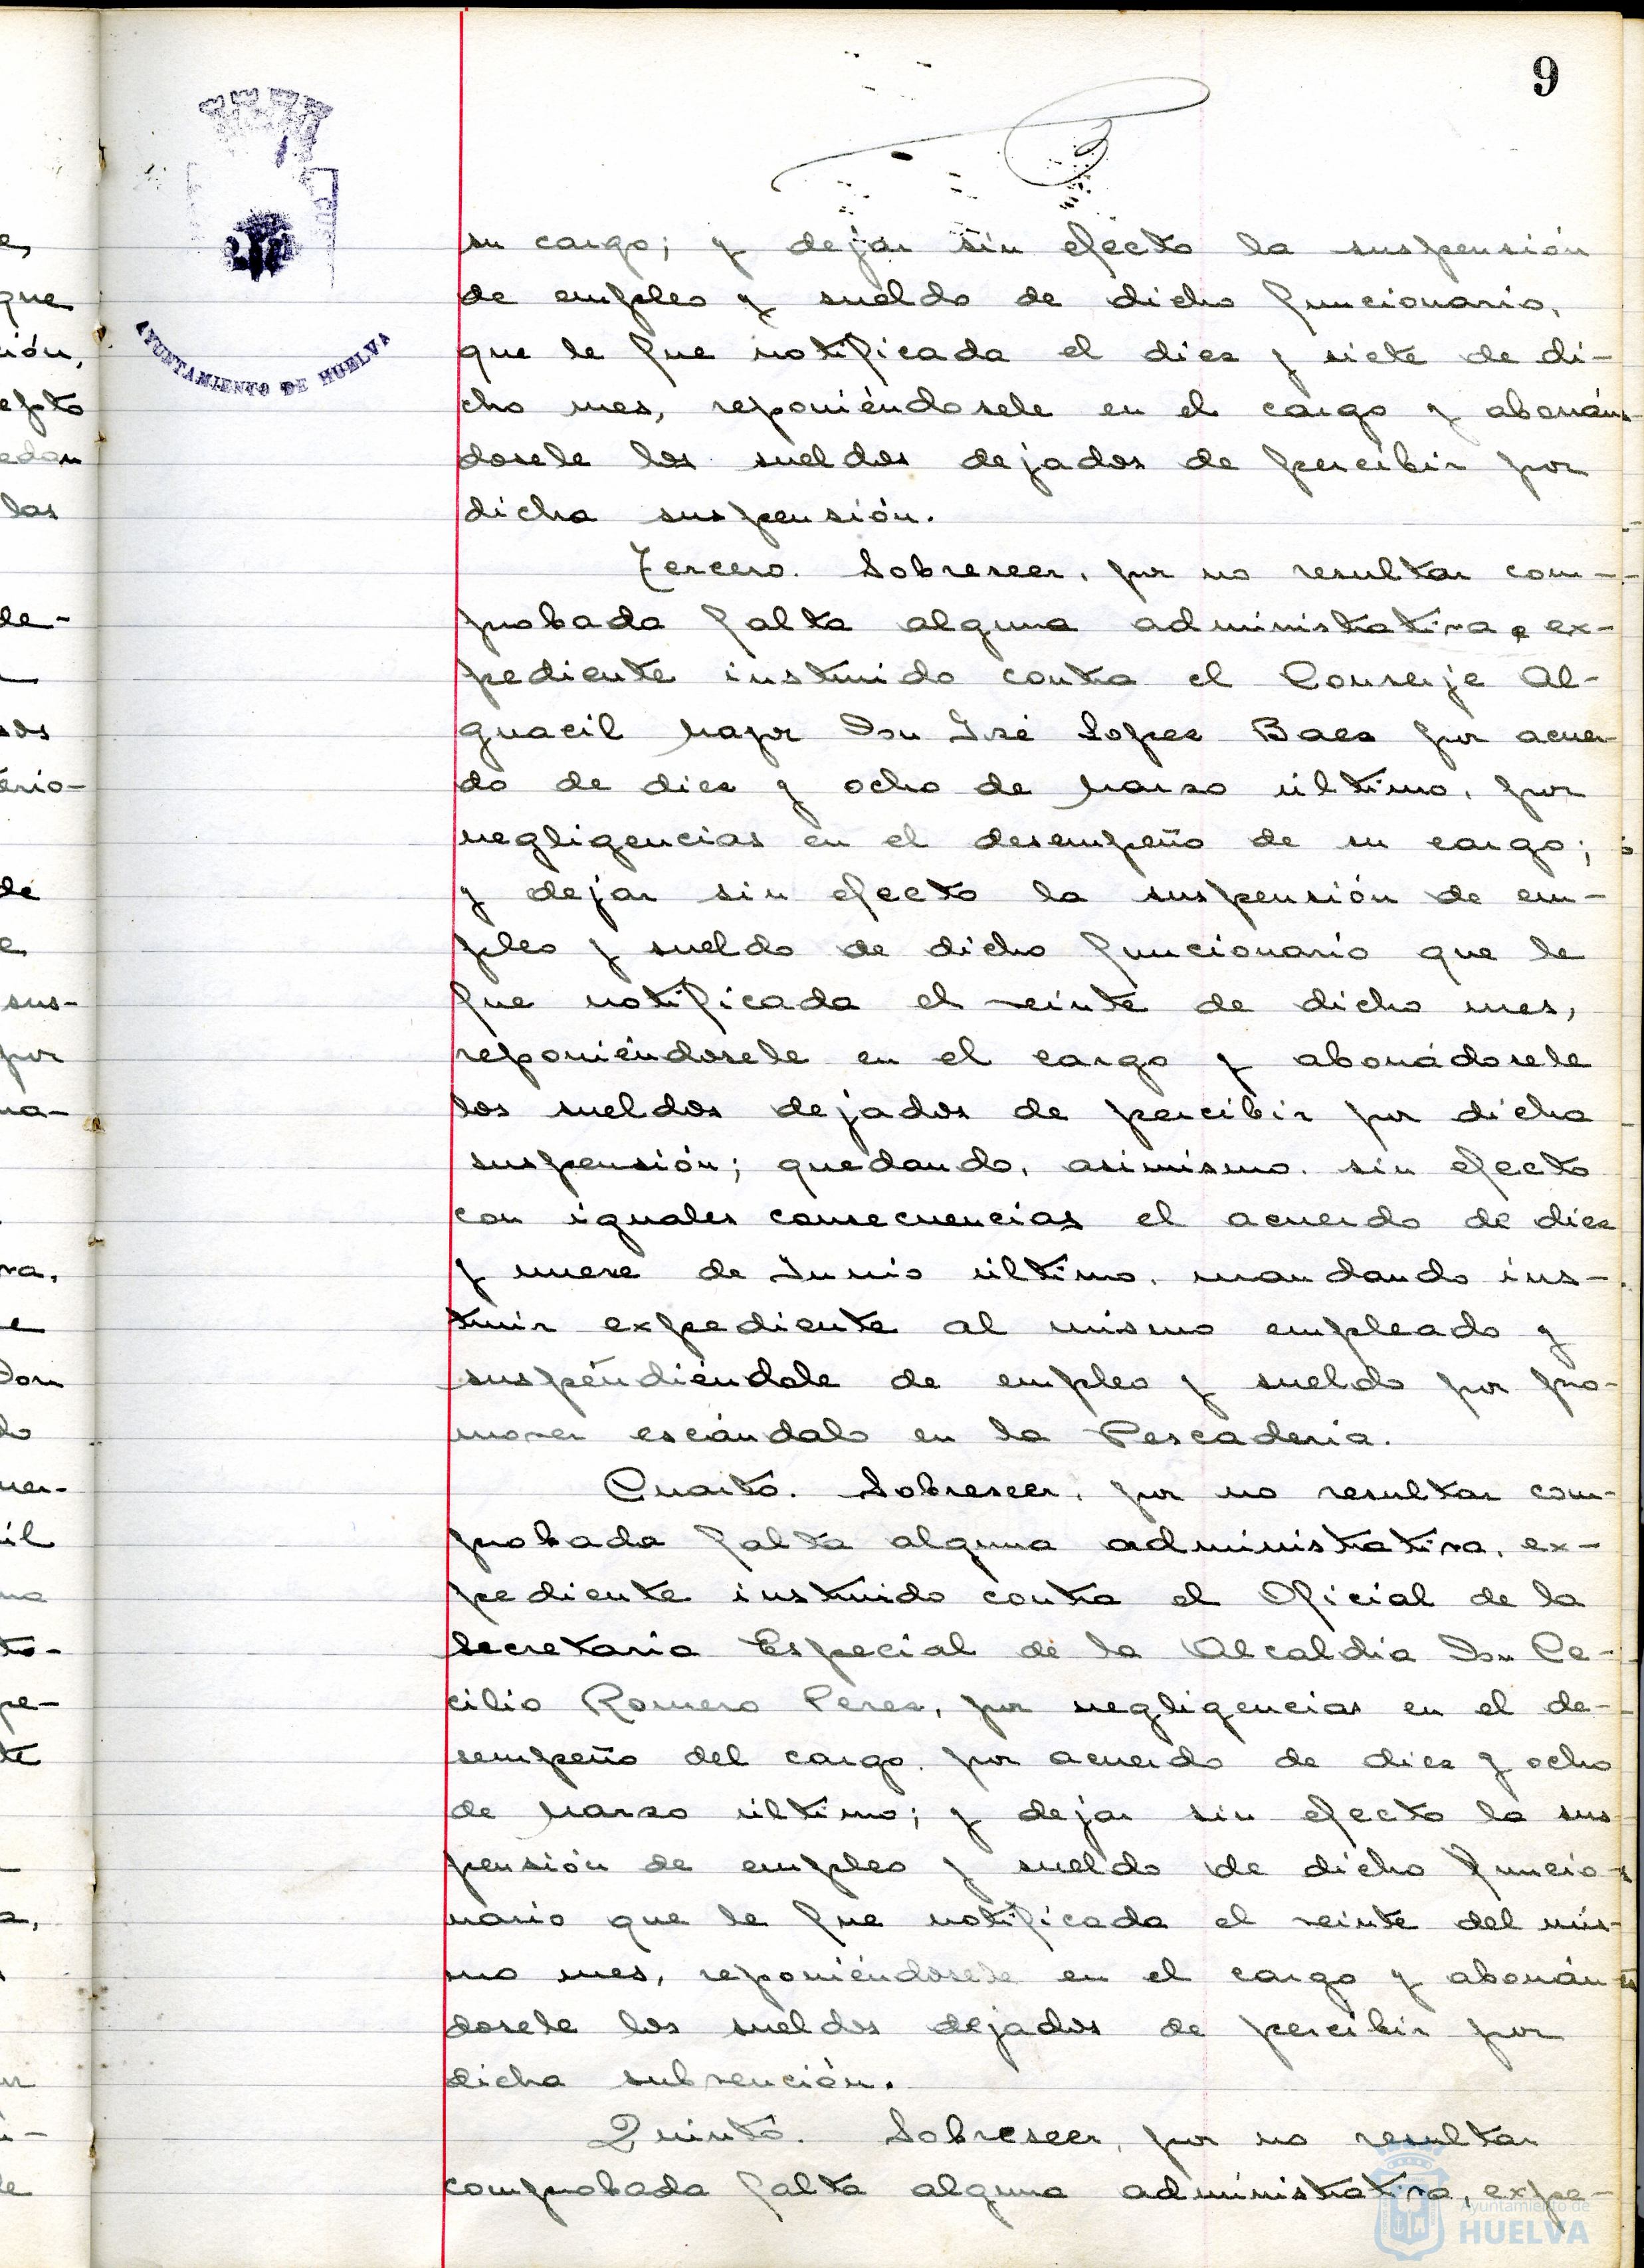 9
AYUNTAMIENTO DE HUELVA
su cargo; y dejar sin efecto la suspensión
de empleo y sueldo de dicho funcionario,
que le fue notificada el diez y siete de di-
cho mes, reponiéndosele en el cargo y abonán-
dosele los sueldos dejados de percibir por
dicha suspensión.
Tercero. Sobreseer, por no resultar com-
probada falta alguna administrativa, ex-
pediente instruido contra el Conserje Al-
guacil Mayor Don José Lopez Baez por acuer-
do de diez y ocho de Marzo último, por
negligencias en el desempeño de su cargo;
y dejar sin efecto la suspensión de em-
pleo y sueldo de dicho funcionario que le
fue notificada el veinte de dicho mes,
reponiéndosele en el cargo y abonádosele
los sueldos dejados de percibir por dicha
suspensión; quedando, asimismo, sin efecto
con iguales consecuencias el acuerdo de diez
y nueve de Junio último, mandando ins-
truir expediente al mismo empleado y
suspéndiéndole de empleo y sueldo por pro-
mover escándalo en la Pescadería.
Cuarto. Sobreseer, por no resultar com-
probada falta alguna administrativa, ex-
pediente instruido contra el Oficial de la
Secretaria Especial de la Alcaldía Don Ce-
cilio Romero Perez, por negligencias en el de-
sempeño del cargo, por acuerdo de diez y ocho
de Marzo último; y dejar sin efecto la sus-
pensión de empleo y sueldo de dicho funcio-
nario que le fue notificada el veinte del mis-
mo mes, reponiéndosele en el cargo y abonán-
dosele los sueldos dejados de percibir por
dicha subvención.
Quinto. Sobreseer, por no resultar
comprobada falta alguna administrativa, expe-
Ayuntamiento de
HUELVA